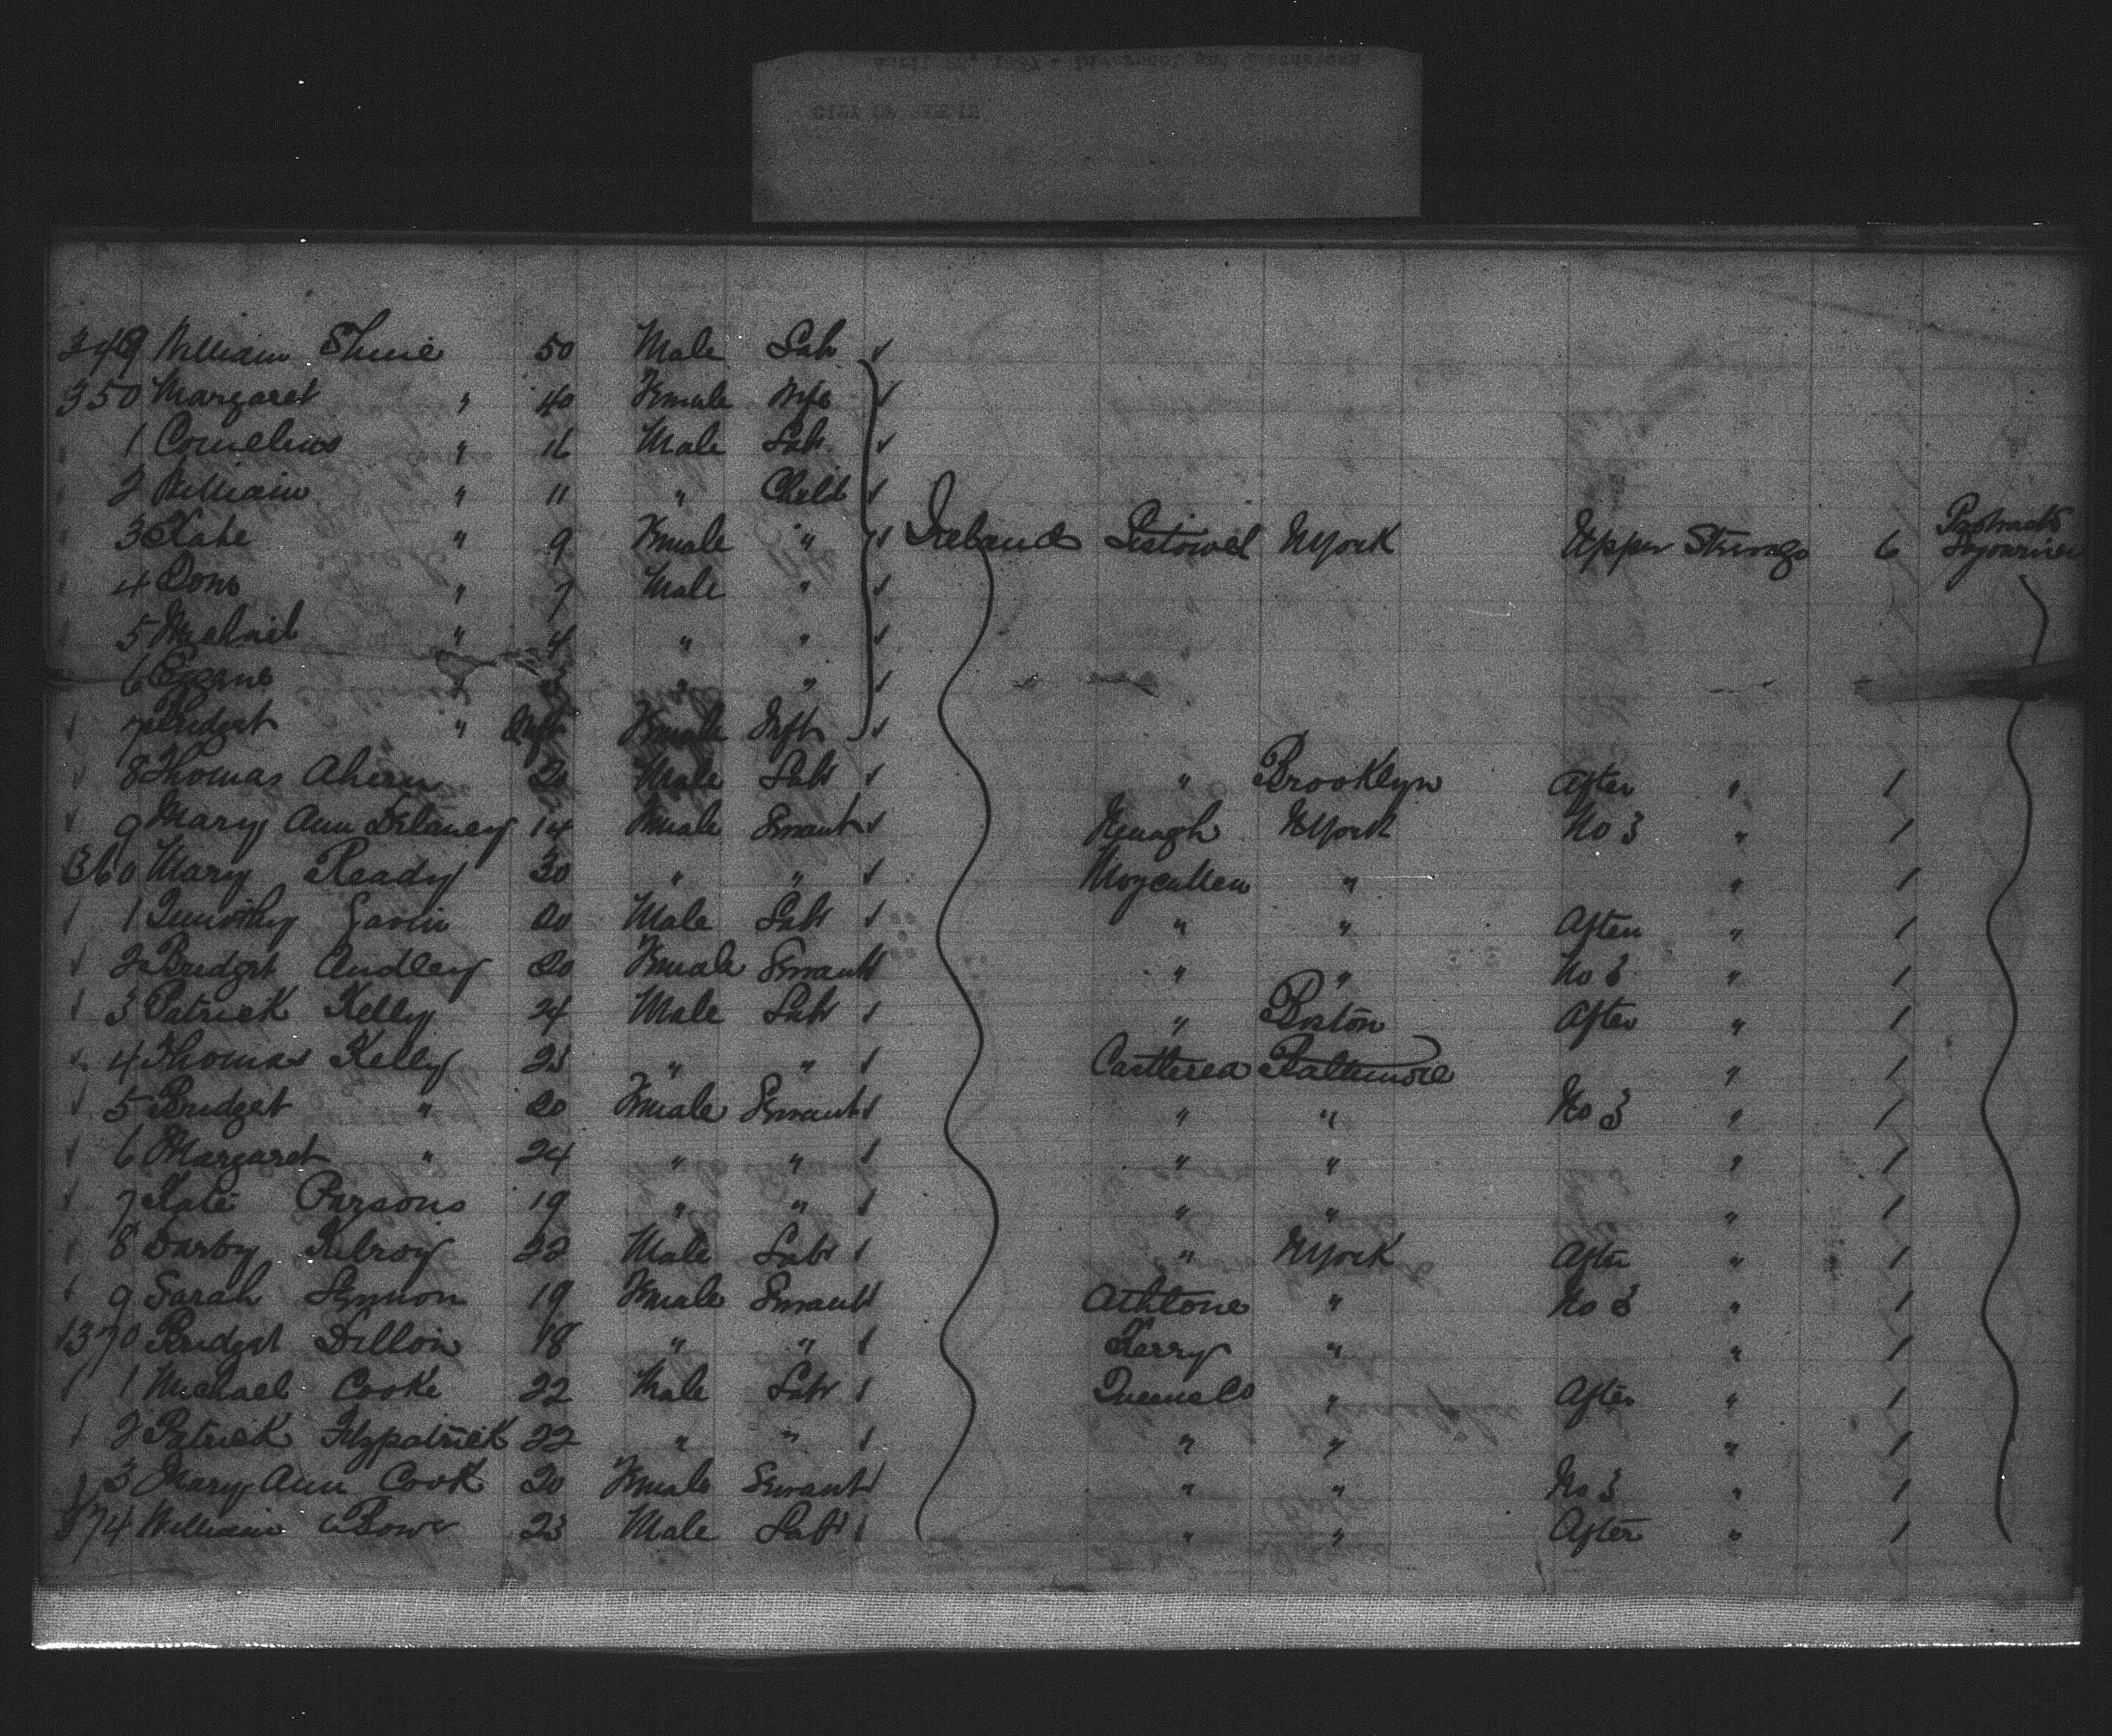 349 William Shine 50 Male Lab
350 Margaret " 40 Female Wife
1 Cornelius " 16 Male Lab
2 William " 11 " Child
3 Kate " 9 Female " Ireland Listowel NYork Upper Steerage 6 Protracted Sojourner
4 Dono " 7 Male "
5 Michael " 4 " "
6 " " "
7 Bridget " Inft Female Inft
8 Thomas Ahern 20 Male Labr " Brooklyn After " 1
9 Mary Ann Delaney 14 Female Servant Nenagh NYork No 3 " 1
360 Mary Ready 30 " " Moycullen " " 1
1 Timothy Gavin 20 Male Labr " " After " 1
2 Bridget Audley 20 Female Servant " " No 3 " 1
3 Patrick Kelly 24 Male Labr " Boston After " 1
4 Thomas Kelly " " Castlerea Baltimore " 1
5 Bridget " 20 Female Servant " " No 3 " 1
6 Margaret " 24 " " " " " 1
7 Kate Parsons 19 " " " " " 1
8 Darby Kilroy 22 Male Labr " NYork After " 1
9 Sarah 19 Female Servant Athlone " No 3 " 1
370 Bridget Dillon 18 " " Kerry " " 1
1 Michael Cooke 22 Male Labr Queens Co " After " 1
2 Patrick Fitzpatrick 22 " " " " " 1
3 Mary Ann Cook 20 Female Servant " " No 3 " 1
374 William Bowe 23 Male Labr " " After " 1